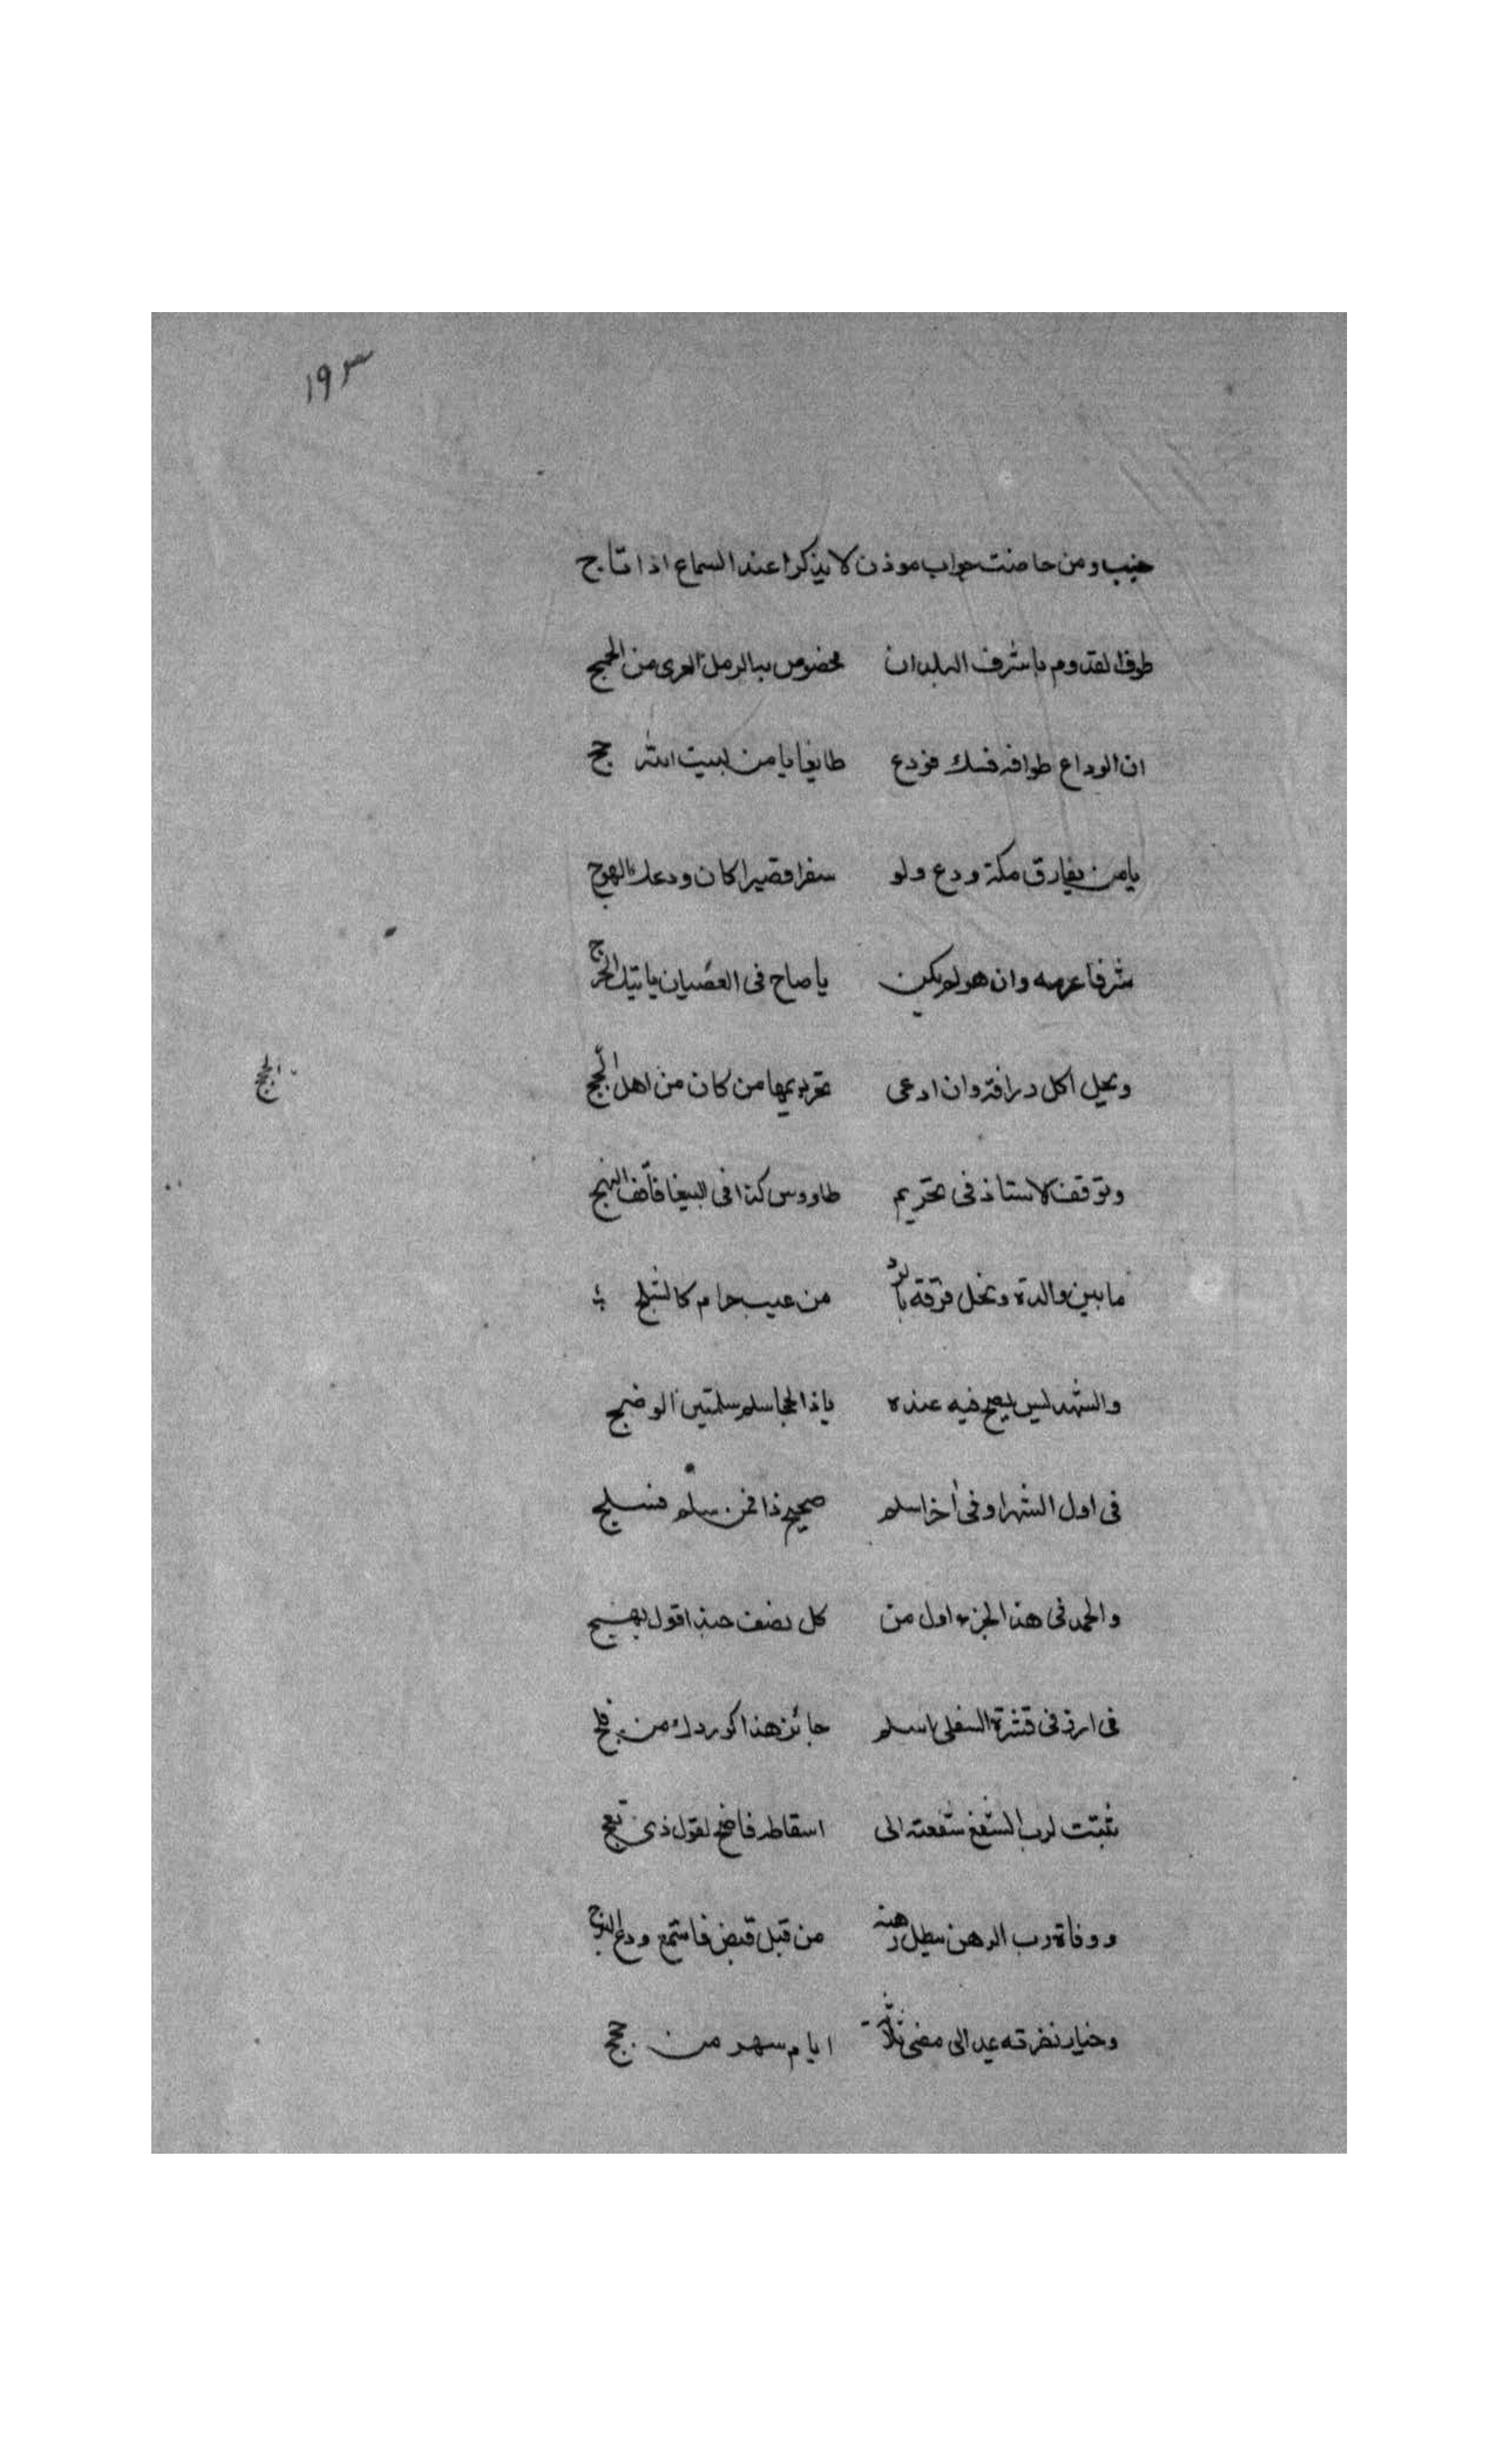 ١٩٣
جنب ومن حاضت جواب موذن لا يذكرا عند السماع اذا تاج
طوف القدوم باشرف البلدان مخصوص بالرمل العرى من الحجج
ان الوداع طوافه نسك فودع طايفا يا من لبيت الله حج
يا من يفارق مكة ودع ولو سفرا قصيرا كان ودعك الهوج
شرفا عرسه وان هو لم يكن يا صاح فى العصيان ياتيك الحرج
ويحل اكل درافة وان ادعى تحريمها من كان من اهل الحجج
الحجج
وتوقف الاستاذ فى تحريم طاووس كذا فى الببغا فاقف النهج
ما بين والدة ونجل فرقة بالرد من عيب حرام كالثبج
والشهد ليس يصح فيه عنده ياذا الحجا سلم سلمتين الوضج
فى اول الشهر او فى اخر اسلم صحيح ذا فمن سلم فسلج
والحمد فى هذا الجزء اول من كل نصف حبذا قول بهيج
فى ارز فى قشرة السفلى اسلم جائز هذا كوردك من فلج
ثبتت لرب الشقع شفعته الى اسقاطه فاضح لقول ذى بعج
ووفاة رب الرهن يبطل رهنه من قبل قبض فاستمع ودع
وخيار نفرته عيد الى مضى ثلاثة ايام سهر من حجج